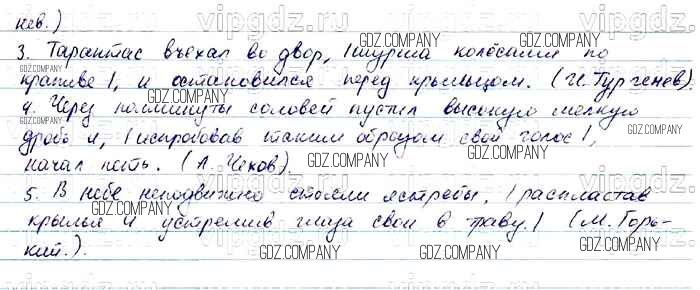 нев.)
3. Тарантас въехал во двор, |шурша колёсами по
крапиве|, и остановился перед крыльцом. (И. Тургенев).
4. Через полминуты соловей пустил высокую мелкую
дробь и, |испробовав таким образом свой голос|,
начал петь. (А. Чехов).
5. В небе неподвижно стояли ястребы, |распластав
крылья и устремив глаза свои в траву.| (М. Горь-
кий.).